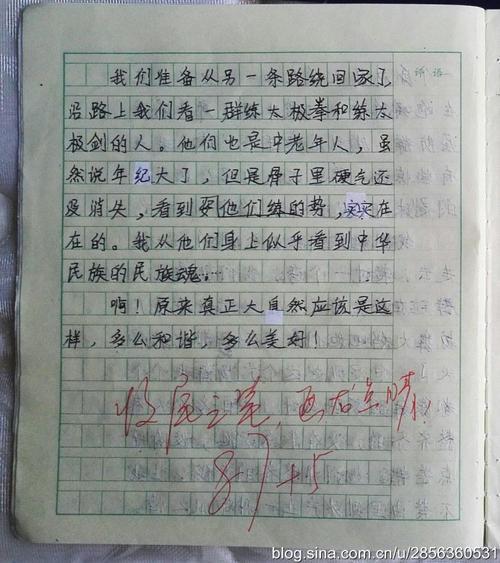 我们准备从另一条路绕回家了
沿路上我们看一群练太极拳和练太
极剑的人。他们也是中老年人,虽
然说年纪大了,但是骨子里硬气还
没消失,看到他们练的势,实实在
在的。我从他们身上似乎看到中华
民族的民族魂。…
啊!原来真正大自然应该是这
样,多么和谐,多么美好!
87 +5
blog.sina.com.cn/u/2856360531